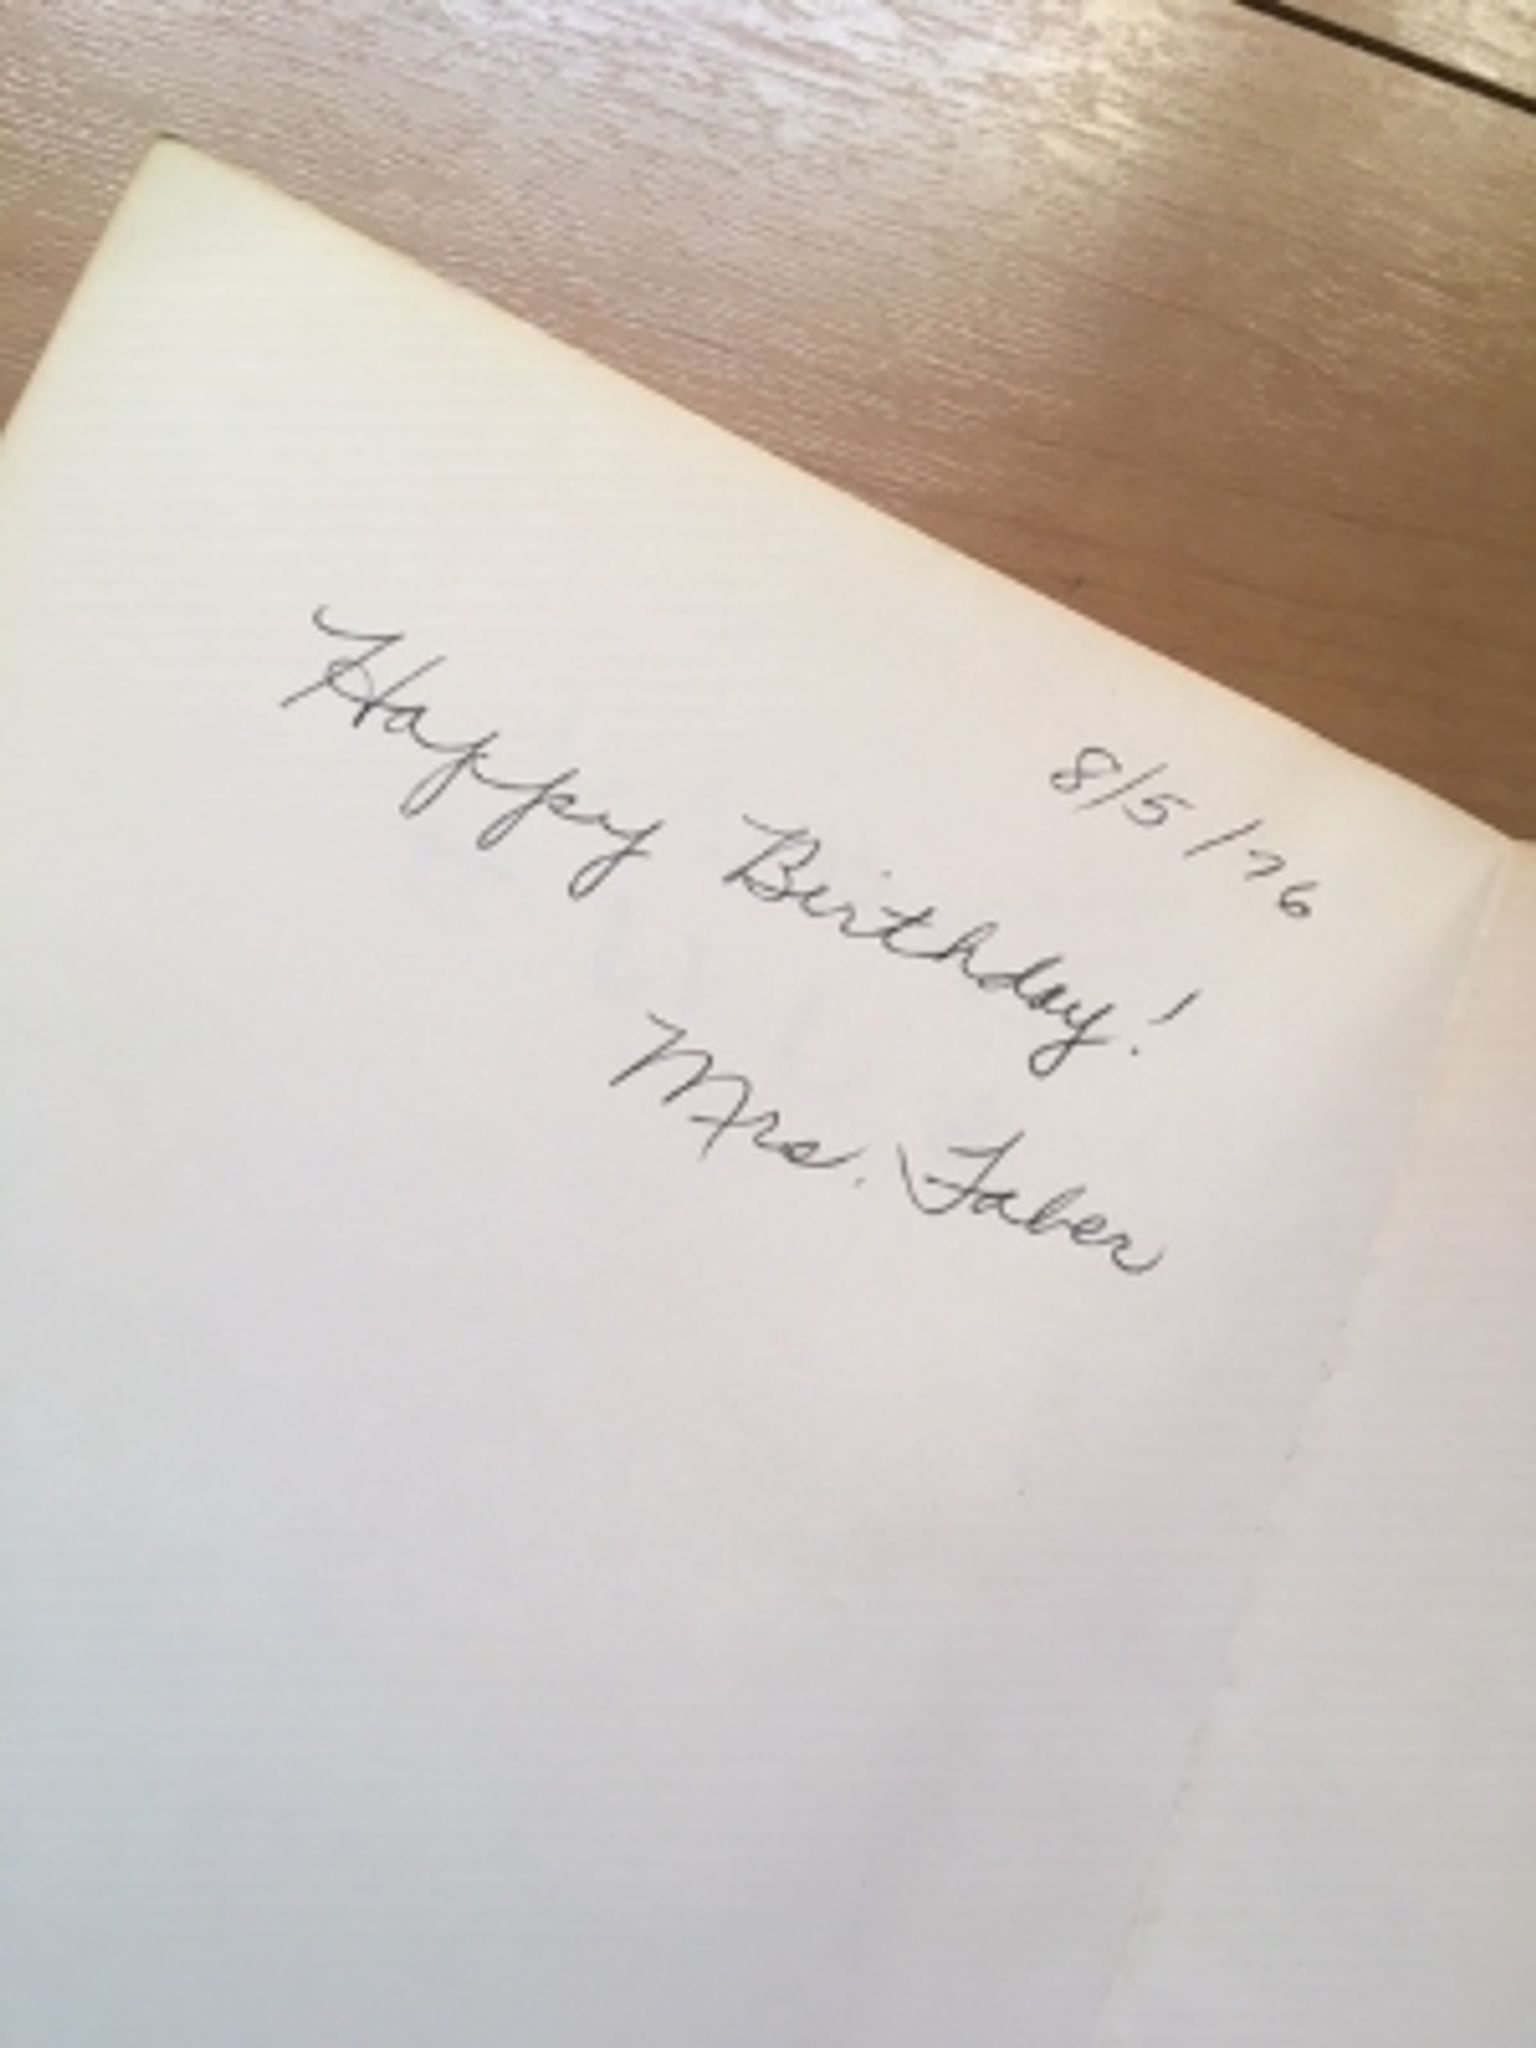 8/5/76
Happy Birthday!
Mrs. Faber